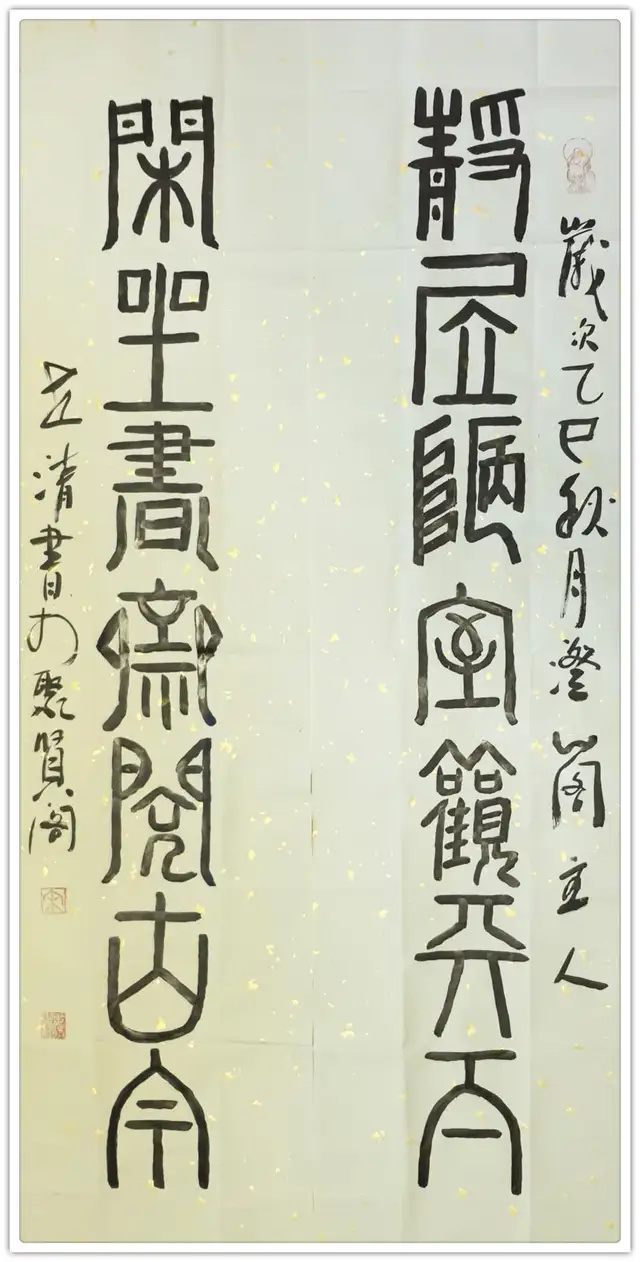 歲次乙巳秋月澄閣主人
靜居陋室觀天下
閑坐書齋閱古今
清書於聚賢閣